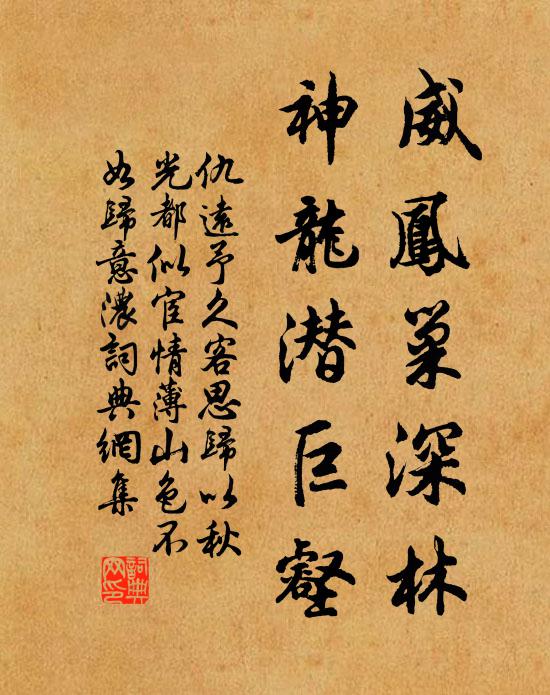 威鳳巢深林
神龍潜巨壑
仇遠予久客思歸以秋
光都似宦情薄山色不
如歸意濃詞典網集
詞典
网印